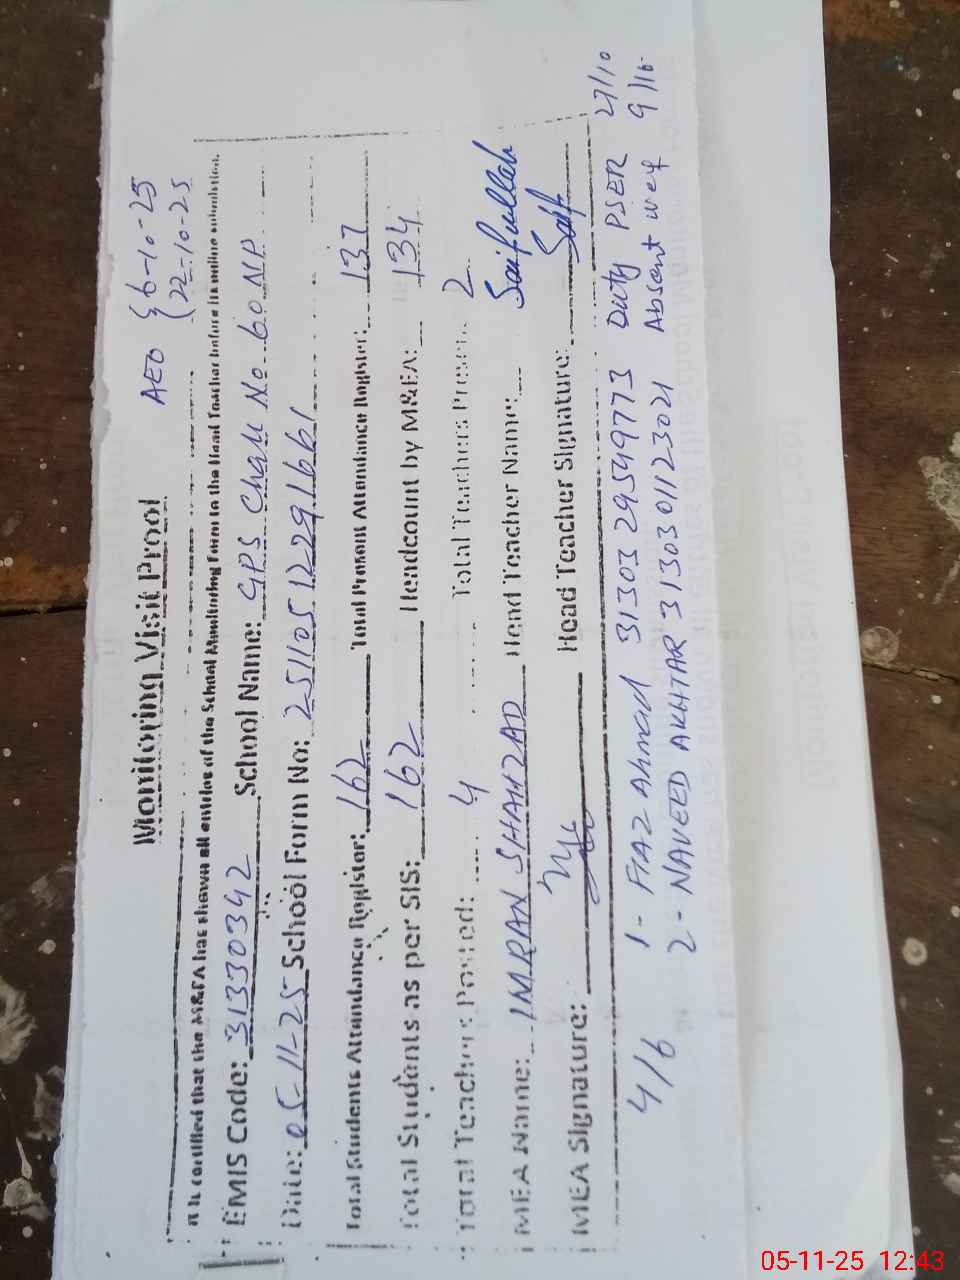 AEO { 6-10-25
22-10-25
Monitoring Visit Proof
It is certified that the M&EA has shown all entries of the School Monitoring Form to the Head Teacher before its online submission.
EMIS Code: 31330342 School Name: GPS Chak No. 60 NP
Date: 05-11-25 School Form No: 251105122291661
Total Students Attendance Register: 162 Total Present Attendance Register: 137
Total Students as per SIS: 162 Headcount by M&EA: 134
Total Teachers Posted: 4 Total Teachers Present: 2
MEA Name: IMRAN SHAHZAD Head Teacher Name: Saifullah
MEA Signature: Head Teacher Signature: Saif
4/6 1- FIAZ Ahmad 31303 29549773 Duty PSER 27/10
2- NAVEED AKHTAR 31303 01123021 Absent wef 9/10
05-11-25 12:43